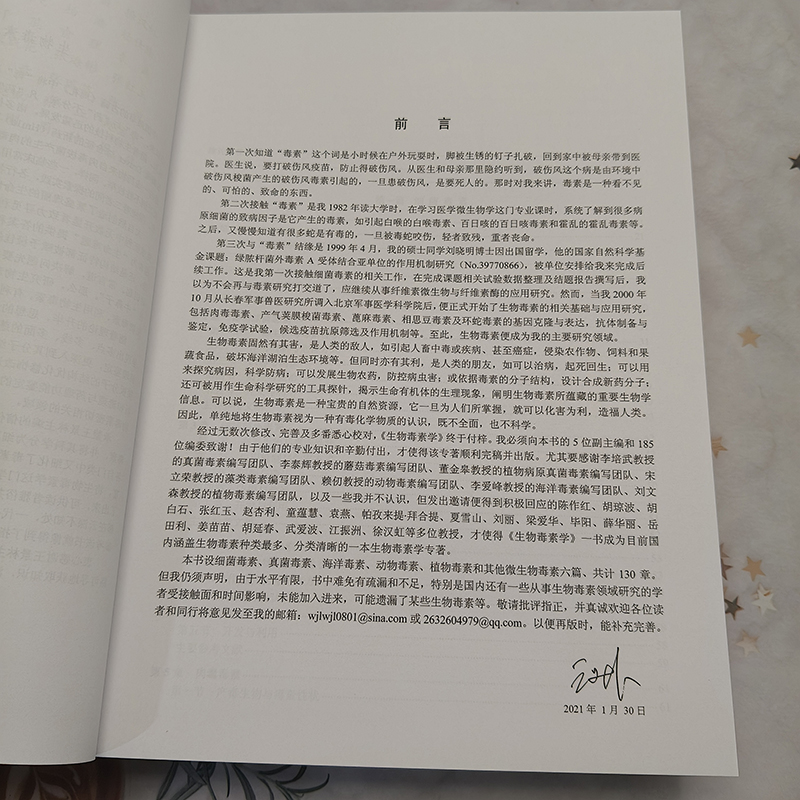 前 言
第一次知道“毒素”这个词是小时候在户外玩耍时，脚被生锈的钉子扎破，回到家中被母亲带到医
院。医生说，要打破伤风疫苗，防止得破伤风。从医生和母亲那里隐约听到，破伤风这个病是由环境中
破伤风梭菌产生的破伤风毒素引起的，一旦患破伤风，是要死人的。那时对我来讲，毒素是一种看不见
的、可怕的、致命的东西。
第二次接触“毒素”是我 1982 年读大学时，在学习医学微生物学这门专业课时，系统了解到很多病
原细菌的致病因子是它产生的毒素，如引起白喉的白喉毒素、百日咳的百日咳毒素和霍乱的霍乱毒素等。
之后，又慢慢知道有很多蛇是有毒的，一旦被毒蛇咬伤，轻者致残，重者丧命。
第三次与“毒素”结缘是 1999 年 4 月，我的硕士同学刘晓明博士因出国留学，他的国家自然科学基
金课题：绿脓杆菌外毒素 A 受体结合亚单位的作用机制研究（No.39770866），被单位安排给我来完成后
续工作。这是我第一次接触细菌毒素的相关工作，在完成课题相关试验数据整理及结题报告撰写后，我
以为不会再与毒素研究打交道了，应继续从事纤维素微生物与纤维素酶的应用研究。然而，当我 2000 年
10 月从长春军事兽医研究所调入北京军事医学科学院后，便正式开始了生物毒素的相关基础与应用研究，
包括肉毒毒素、产气荚膜梭菌毒素、蓖麻毒素、相思豆毒素及环蛇毒素的基因克隆与表达，抗体制备与
鉴定，免疫学试验，候选疫苗抗原筛选及作用机制等。至此，生物毒素便成为我的主要研究领域。
生物毒素固然有其害，是人类的敌人，如引起人畜中毒或疾病、甚至癌症，侵染农作物、饲料和果
蔬食品，破坏海洋湖泊生态环境等。但同时亦有其利，是人类的朋友，如可以治病，起死回生；可以用
来探究病因，科学防病；可以发展生物农药，防控病虫害；或依据毒素的分子结构，设计合成新药分子；
还可被用作生命科学研究的工具探针，揭示生命有机体的生理现象，阐明生物毒素所蕴藏的重要生物学
信息。可以说，生物毒素是一种宝贵的自然资源，它一旦为人们所掌握，就可以化害为利，造福人类。
因此，单纯地将生物毒素视为一种有毒化学物质的认识，既不全面，也不科学。
经过无数次修改、完善及多番悉心校对，《生物毒素学》终于付梓。我必须向本书的 5 位副主编和 185
位编委致谢！由于他们的专业知识和辛勤付出，才使得该专著顺利完稿并出版。尤其要感谢李培武教授
的真菌毒素编写团队、李泰辉教授的蘑菇毒素编写团队、董金皋教授的植物病原真菌毒素编写团队、宋
立荣教授的藻类毒素编写团队、赖仞教授的动物毒素编写团队、李爱峰教授的海洋毒素编写团队、刘文
森教授的植物毒素编写团队，以及一些我并不认识，但发出邀请便得到积极回应的陈作红、胡琼波、胡
白石、张红玉、赵杏利、童蕴慧、袁燕、帕孜来提·拜合提、夏雪山、刘丽、梁爱华、毕阳、薛华丽、岳
田利、姜苗苗、胡延春、武爱波、江振洲、徐汉虹等多位教授，才使得《生物毒素学》一书成为目前国
内涵盖生物毒素种类最多、分类清晰的一本生物毒素学专著。
本书设细菌毒素、真菌毒素、海洋毒素、动物毒素、植物毒素和其他微生物毒素六篇、共计 130 章。
但我仍须声明，由于水平有限，书中难免有疏漏和不足，特别是国内还有一些从事生物毒素领域研究的学
者受接触面和时间影响，未能加入进来，可能遗漏了某些生物毒素等。敬请批评指正，并真诚欢迎各位读
者和同行将意见发至我的邮箱：wjlwjl0801@sina.com 或 2632604979@qq.com。以便再版时，能补充完善。
2021 年 1 月 30 日